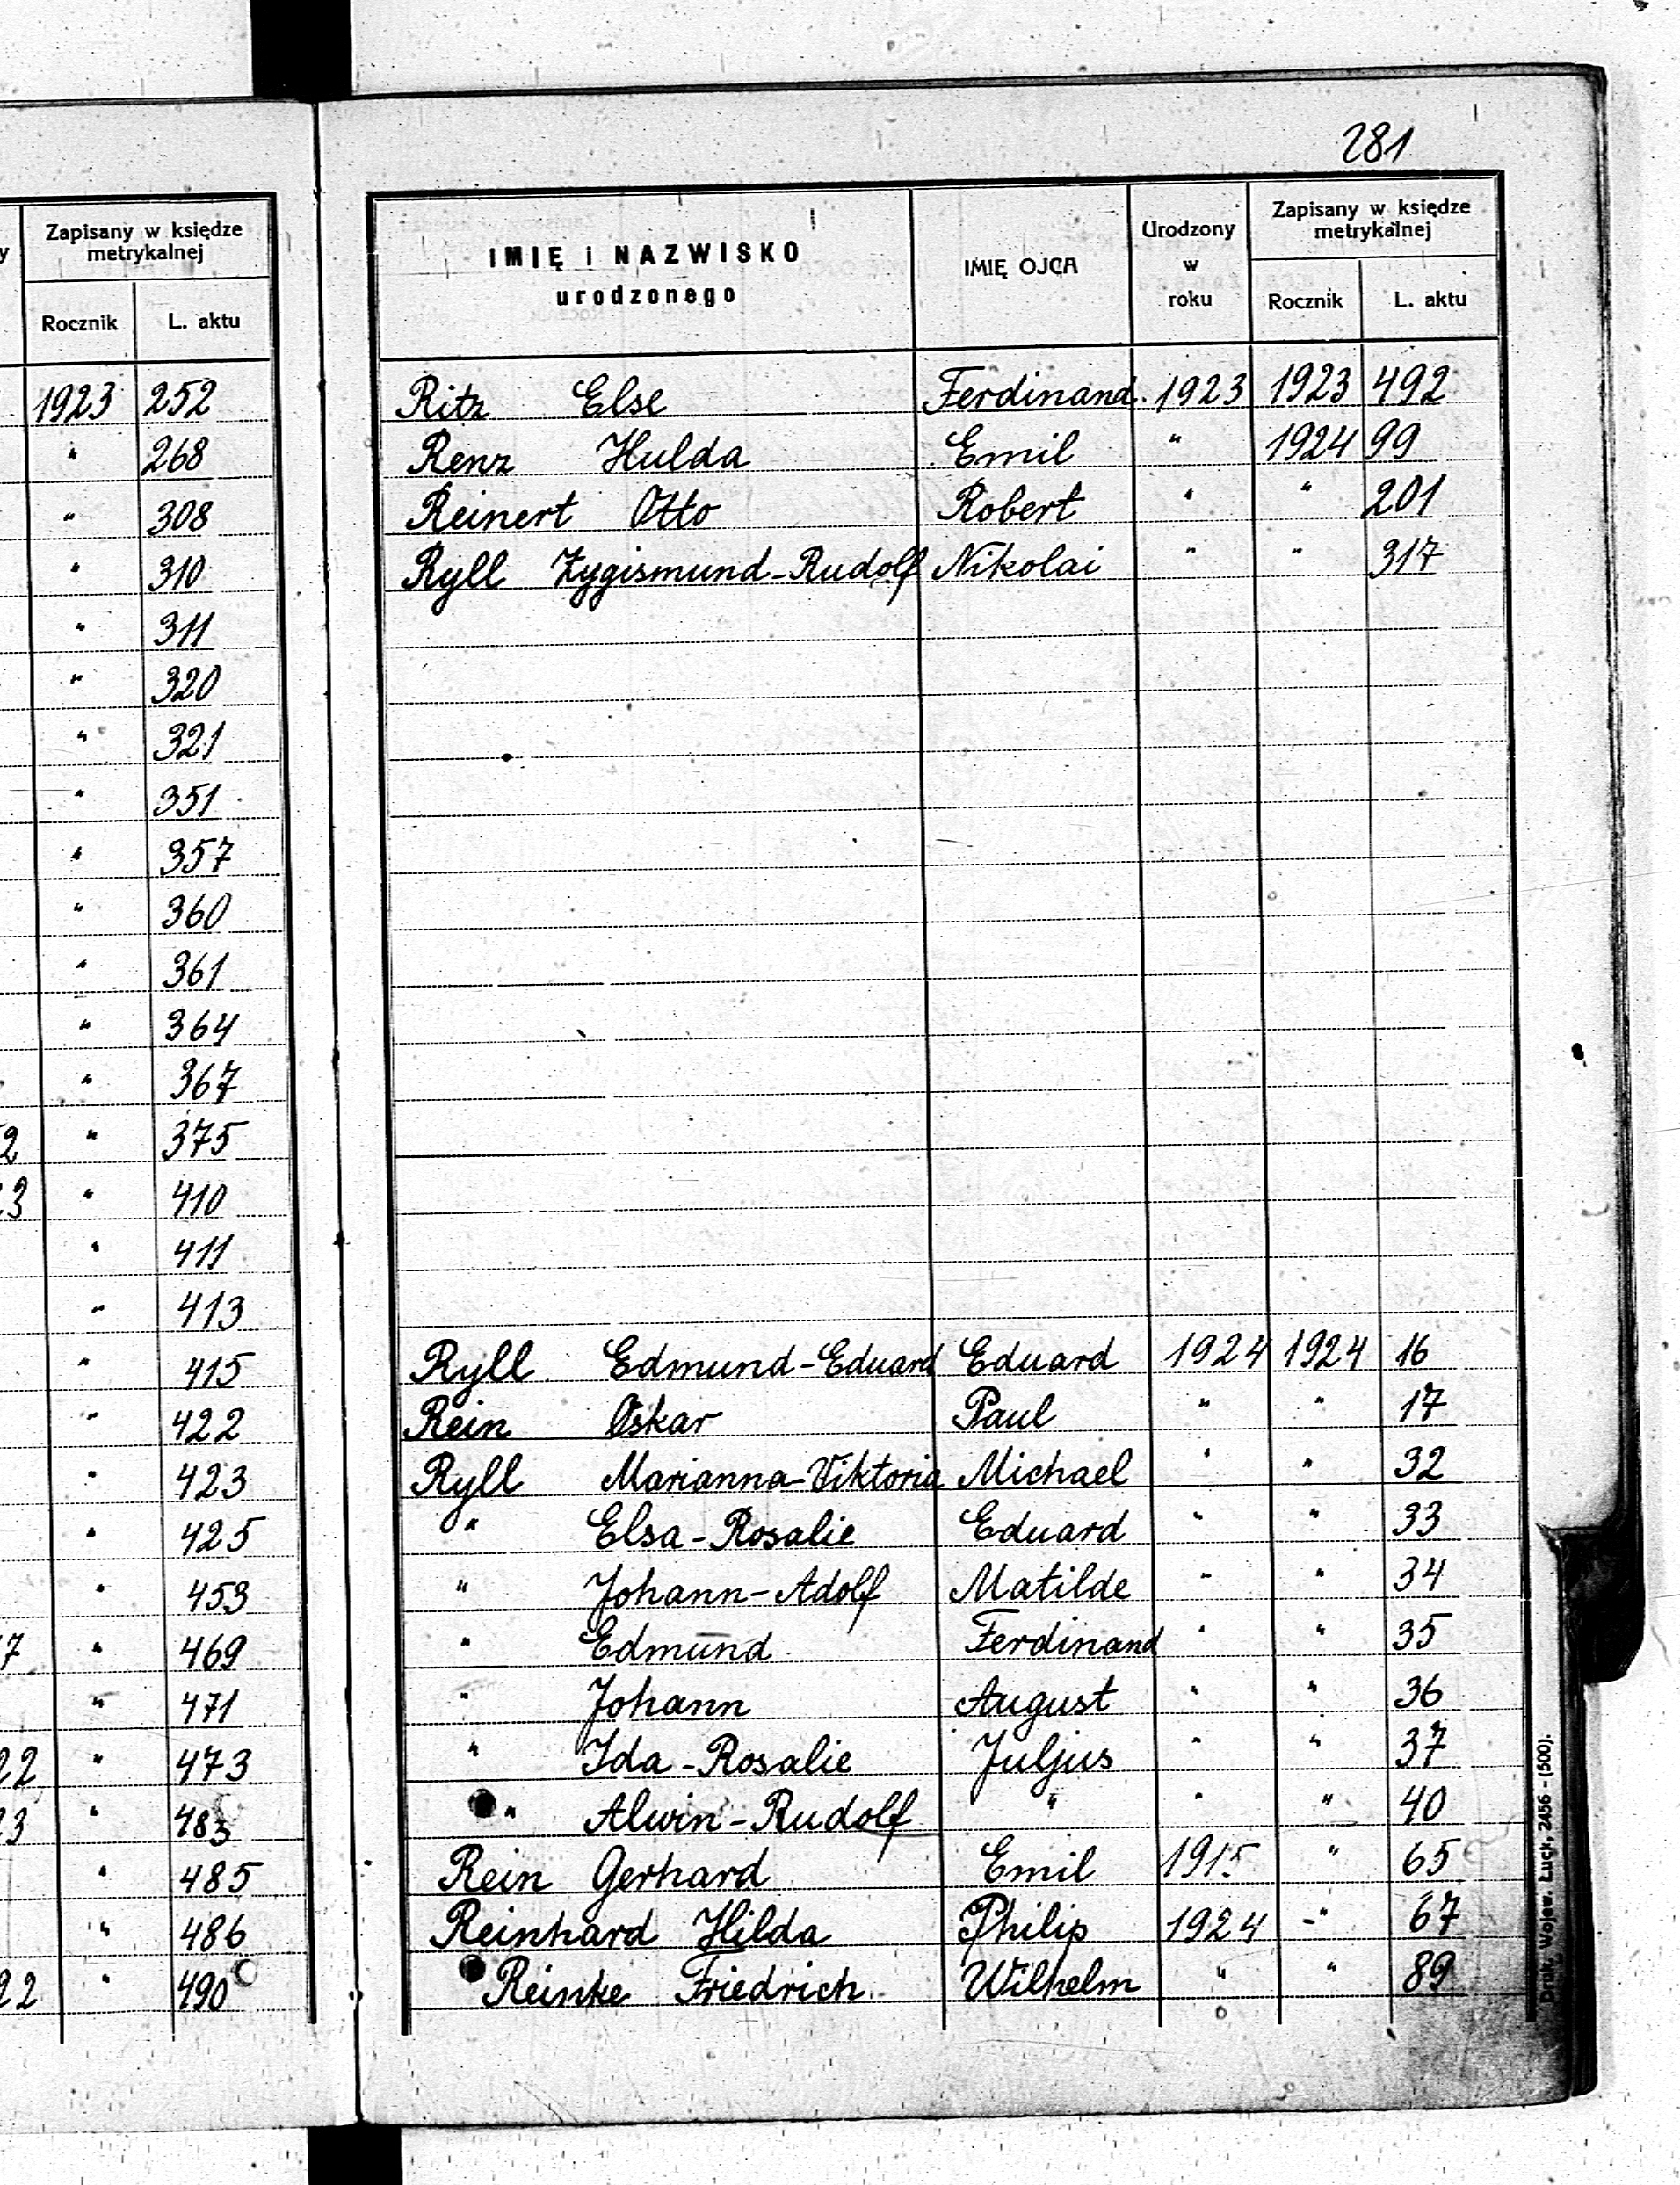 281
y
Zapisany w księdze
metrykalnej
Rocznik L. aktu
1923 252
" 268
" 308
" 310
" 311
" 320
" 321
" 351
" 357
" 360
" 361
" 364
" 367
2 " 375
3 " 410
" 411
" 413
" 415
" 422
" 423
" 425
" 453
7 " 469
" 471
22 " 473
3 " 483
" 485
" 486
22 " 490
IMIĘ i NAZWISKO
urodzonego
IMIĘ OJCA
Urodzony
w
roku
Zapisany w księdze
metrykalnej
Rocznik L. aktu
Ritz Else Ferdinand. 1923 1923 492
Renz Hulda Emil " 1924 99
Reinert Otto Robert " " 201
Ryll Zygismund-Rudolf Nikolai " " 317
Ryll Edmund-Eduard Eduard 1924 1924 16
Rein Oskar Paul " " 17
Ryll Marianna-Viktoria Michael " " 32
" Elsa-Rosalie Eduard " " 33
" Johann-Adolf Matilde " " 34
" Edmund Ferdinand " " 35
" Johann August " " 36
" Ida-Rosalie Juljus " " 37
" Alwin-Rudolf " " " 40
Rein Gerhard Emil 1915 " 65
Reinhard Hilda Philip 1924 -" 67
Reinke Friedrich Wilhelm " " 89
Druk. Wojew. Łuck, 2456 - (500).